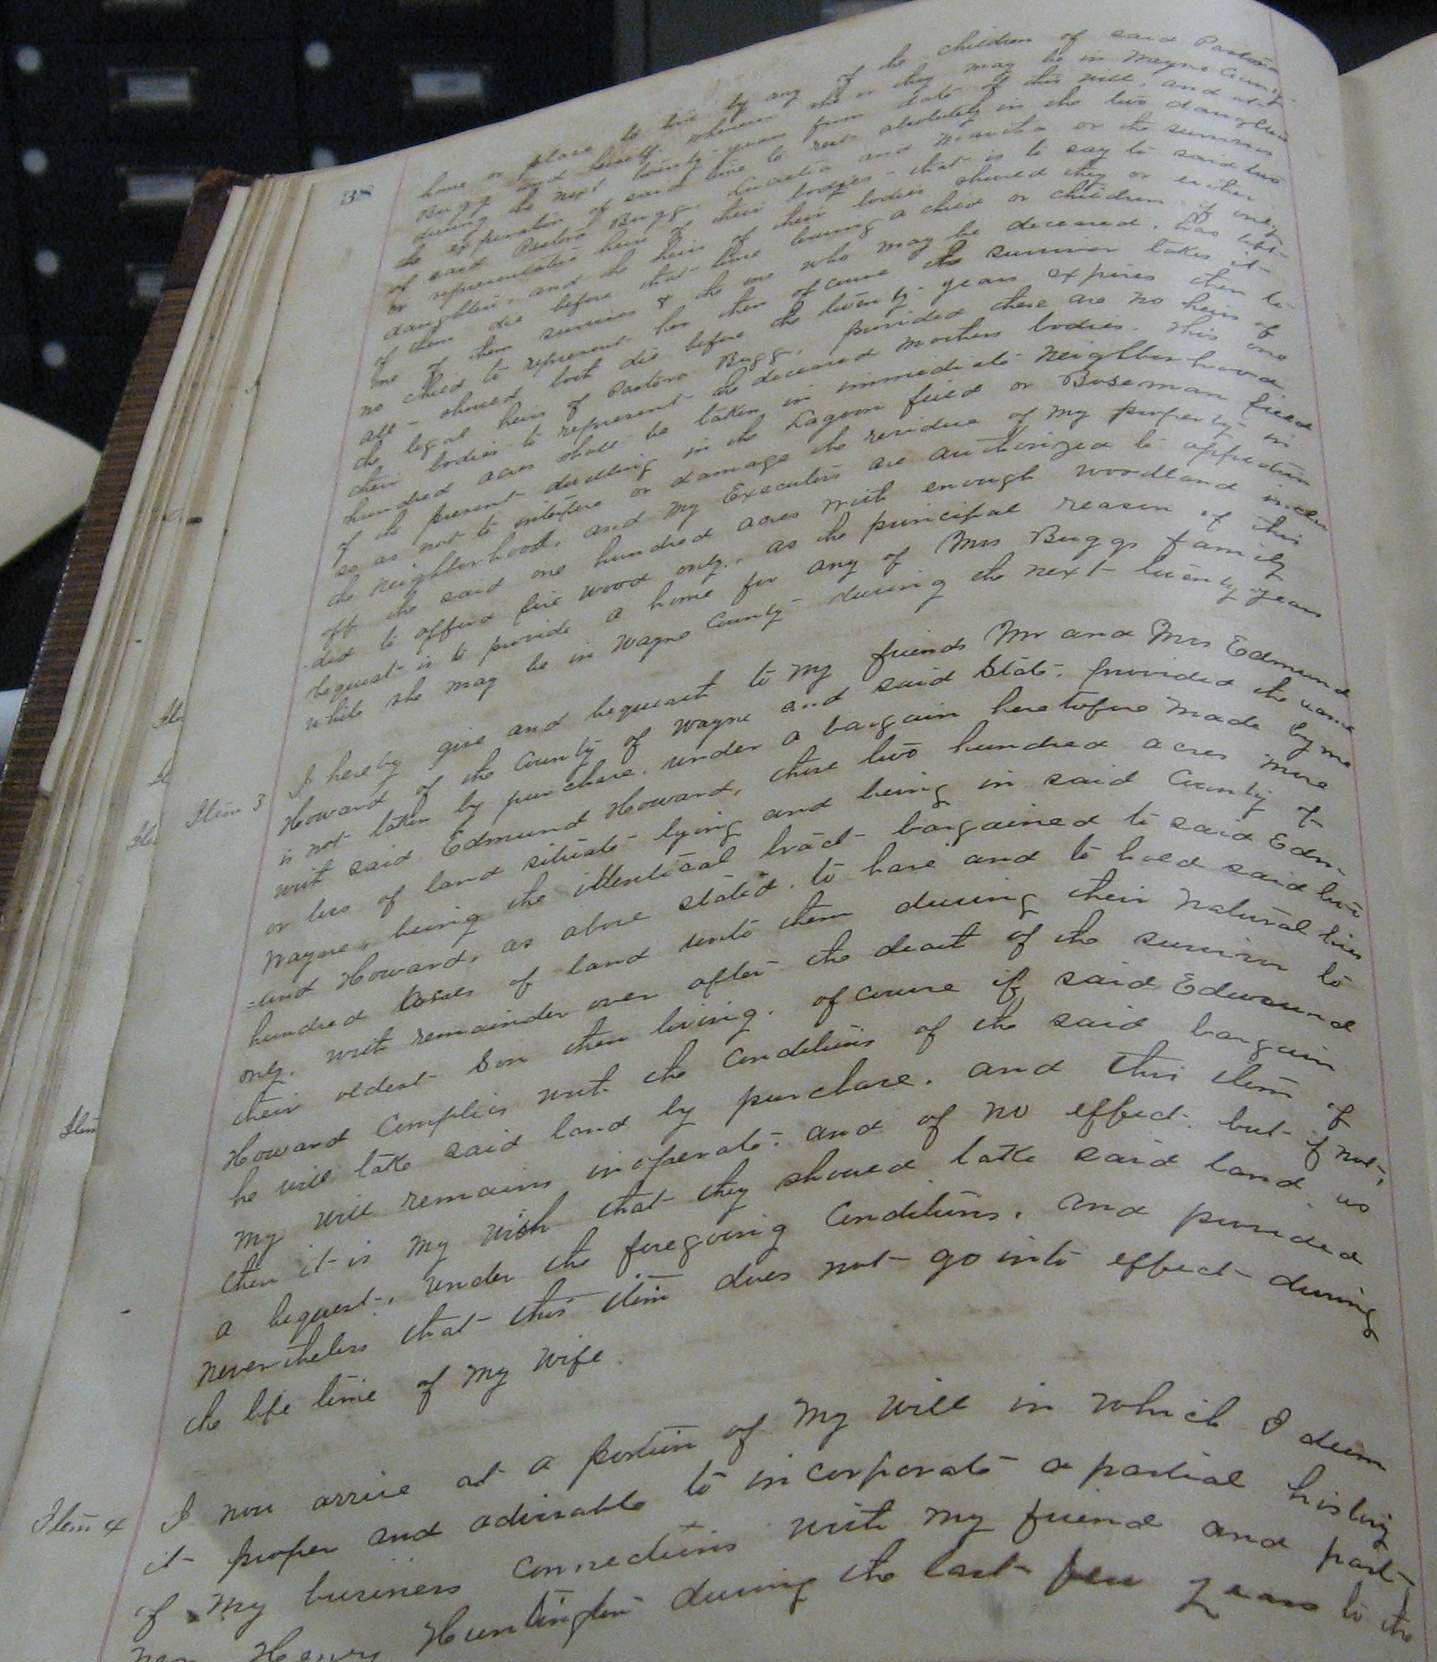 38
home or place to live by any of the children of said Pastora
Bugg and herself, whenever she or they may be in Wayne County
during the next twenty years from date of this will, and at
the expiration of said time to rest absolutely in the two daughters
of said Pastora Bugg, Lucretia and Martha or the survivor
or representative heirs of their bodies - that is to say to said two
daughters, and the heirs of their bodies should they or either
of them die before that time leaving a child or children, if only
one of them survives & the one who may be deceased, has left
no child to represent her then of course the survivor takes it
all - should both die before the twenty years expires then to
the legal heirs of Pastora Bugg, provided there are no heirs of
their bodies to represent the deceased mothers bodies. This one
hundred acres shall be taken in immediate neighborhood
of the present dwelling in the Lagoon field or Boseman field
so as not to interfere or damage the residue of my property in
the neighborhood, and my Executors are authorized to apportion
off the said one hundred acres with enough woodland inclu
-ded to afford fire wood only, as the principal reason of this
bequest is to provide a home for any of Mrs Buggs family
while she may be in Wayne County during the next twenty years
Item 3 I hereby give and bequeath to my friends Mr and Mrs Edmund
Howard of the County of Wayne and said State, provided the same
is not taken by purchase, under a bargain heretofore made by me
with said Edmund Howard, those two hundred acres more
or less of land situate lying and being in said County of
Wayne, being the identical tract bargained to said Edm
=und Howard, as above stated, to have and to hold said two
hundred acres of land unto them during their natural lives
only, with remainder over after the death of the survivor to
their oldest Son then living, of course if said Edmund
Howard Complies with the Conditions of the said bargain
he will take said land by purchase, and this item of
my will remains inoperate and of no effect, but if not,
then it is my wish that they should take said land as
a bequest, under the foregoing Conditions, and provided
nevertheless that this item does not go into effect during
the life time of my wife.
Item 4 I now arrive at a portion of my will in which I deem
it proper and advisable to incorporate a partial history
of my business connections with my friend and part-
ner Henry Huntington during the last few years to the